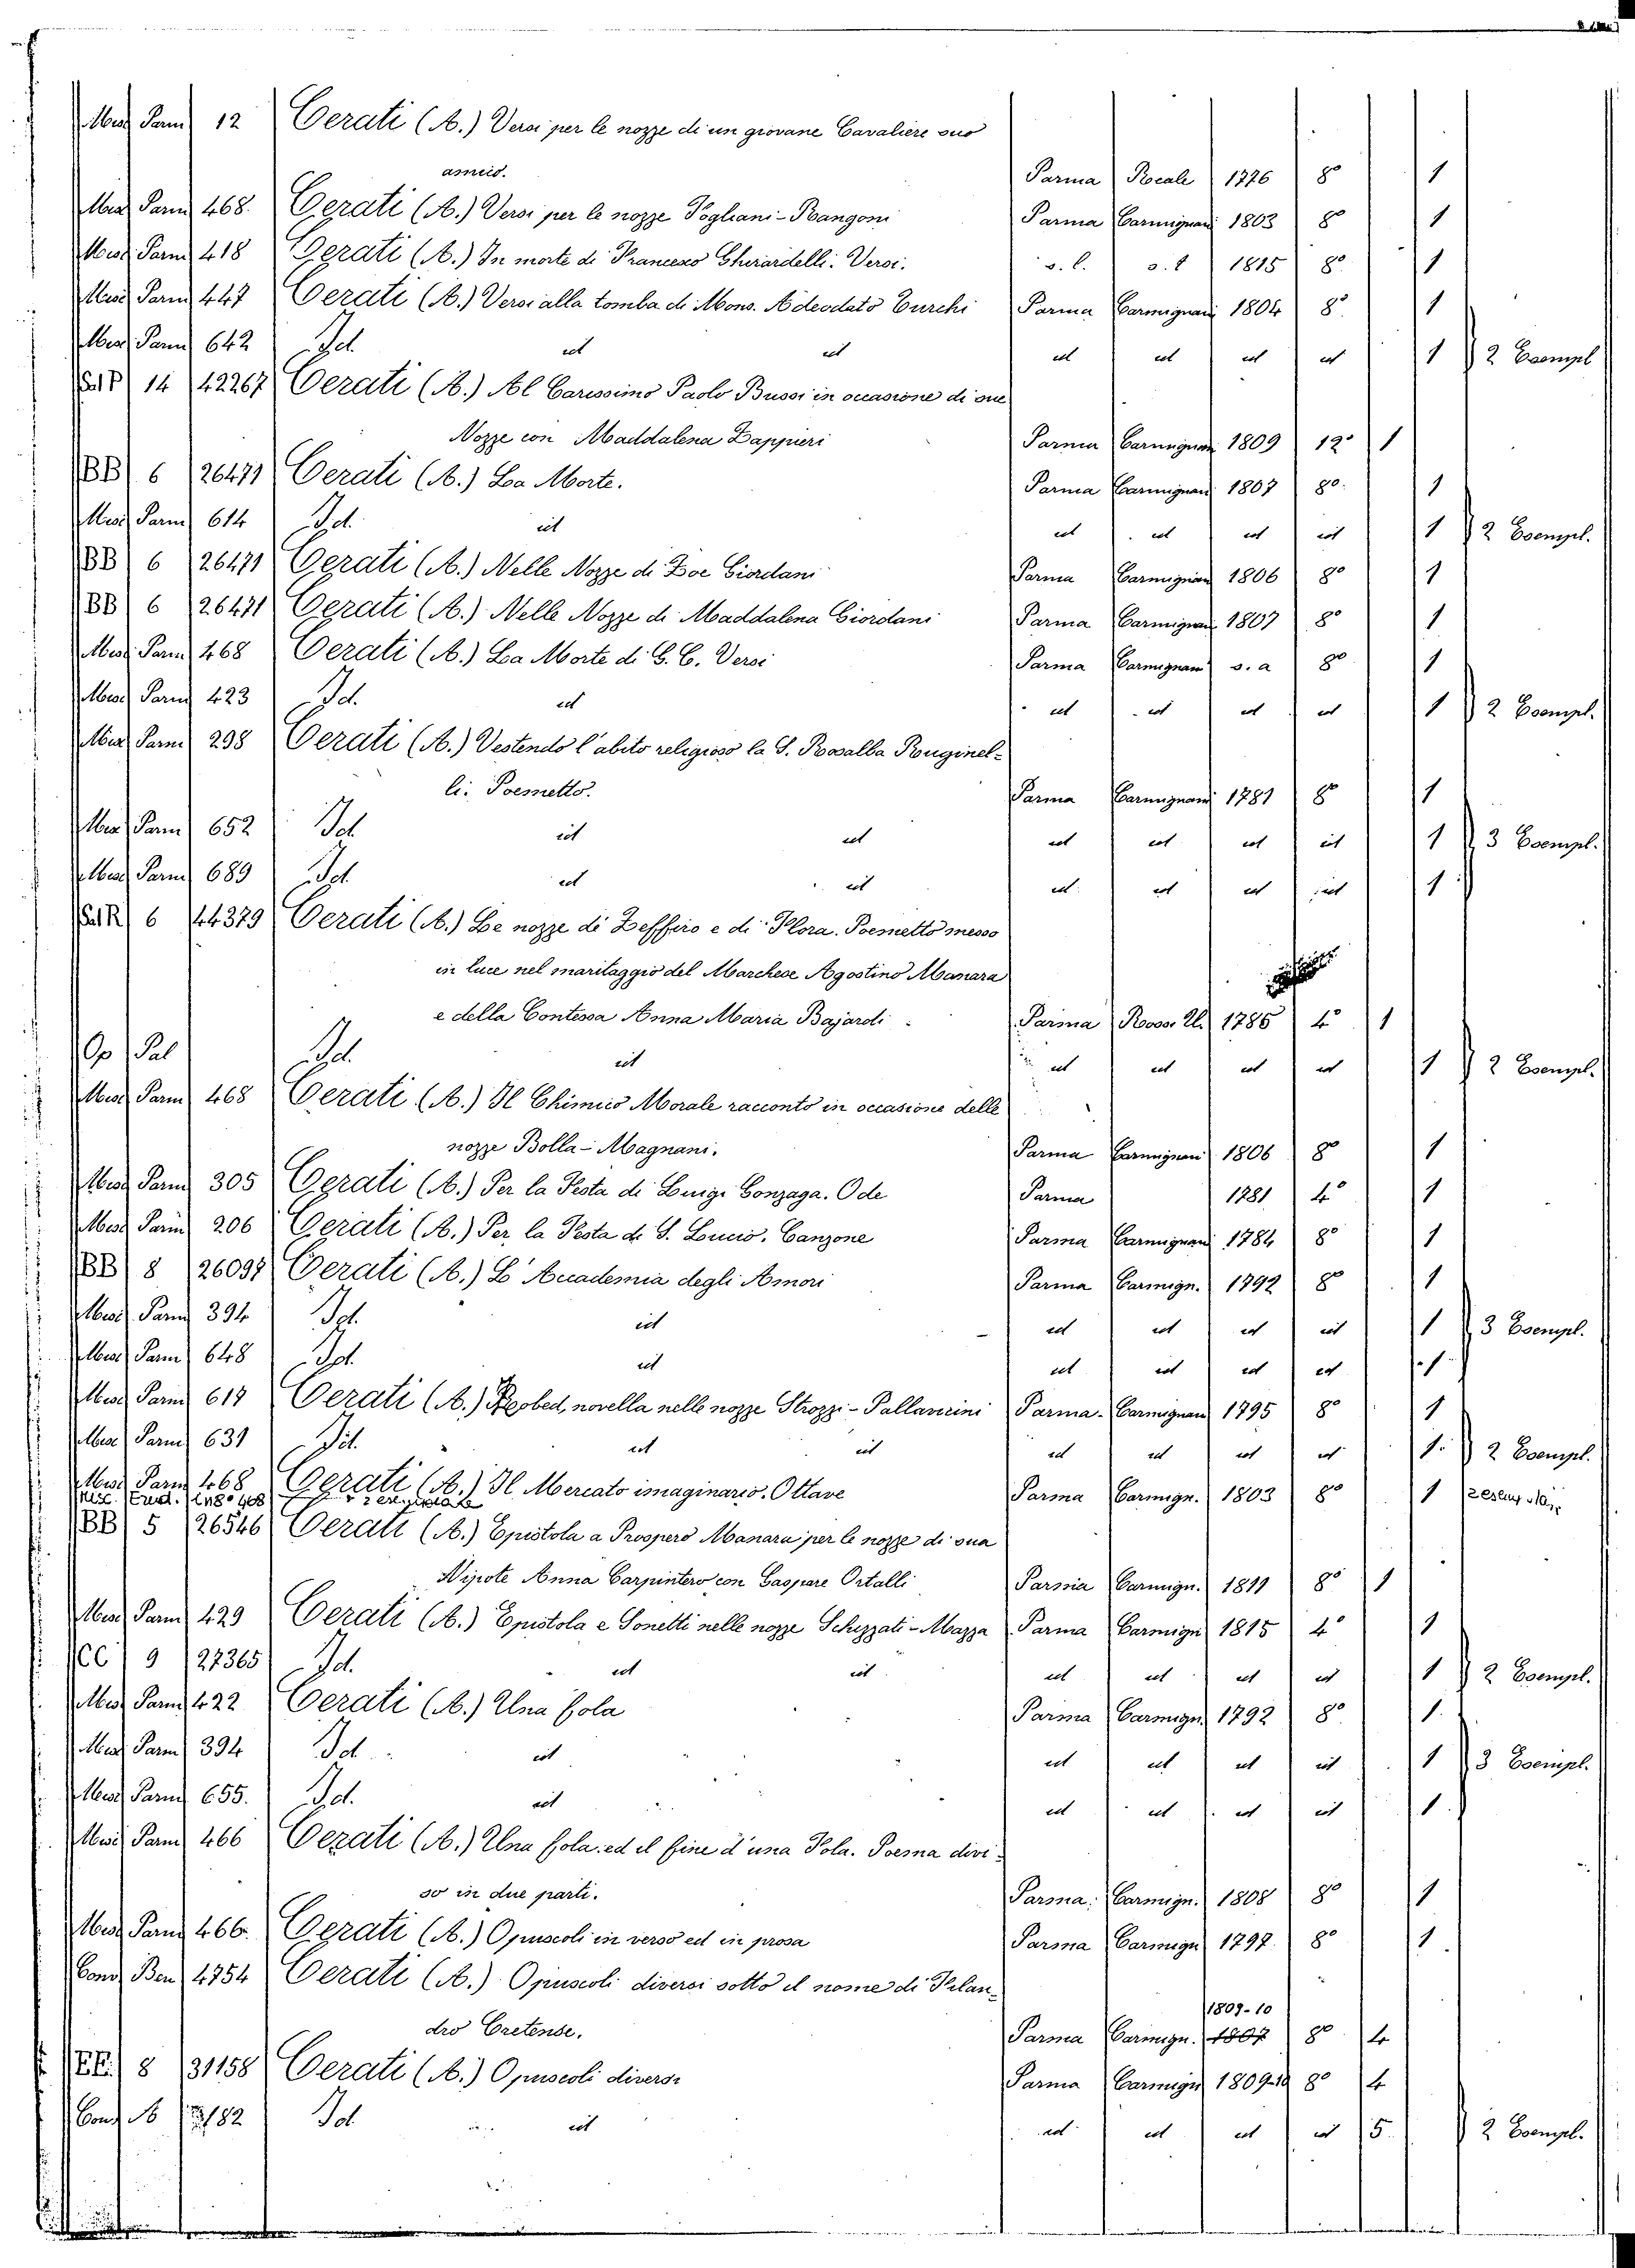 Misc Parm 12 Cerati (A.) Versi per le nozze di un giovane Cavaliere suo
amico. Parma Rocale 1776 8° 1
Misc Parm 468. Cerati (A.) Versi per le nozze Pogliani-Rangoni Parma Carmignani 1803 8° 1
Misc Parm 418 Cerati (A.) In morte di Francesco Gherardelli. Versi. s. l. s. t 1815 8° 1
Misc Parm 447 Cerati (A.) Versi alla tomba di Mons. Adeodato Turchi Parma Carmignani 1804 8° 1
Misc Parm 642 Id. id id id id id id 1 2 Esempl
Sal P 14 42267 Cerati (A.) Al Carissimo Paolo Bussi in occasione di sue
Nozze con Maddalena Dappieri Parma Carmignani 1809 12° 1
BB 6 26471 Cerati (A.) La Morte. Parma Carmignani 1807 8° 1
Misc Parm 614 Id. id id id id id 1 2 Esempl.
BB 6 26471 Cerati (A.) Nelle Nozze di Zoe Giordani Parma Carmignani 1806 8° 1
BB 6 26471 Cerati (A.) Nelle Nozze di Maddalena Giordani Parma Carmignani 1807 8° 1
Misc Parm 468 Cerati (A.) La Morte di G. C. Versi Parma Carmignani s. a 8° 1
Misc Parm 423 Id. id id id id id 1 2 Esempl.
Misc Parm 298 Cerati (A.) Vestendo l'abito religioso la S. Rosalba Ruginel-
li. Poemetto. Parma Carmignani 1781 8° 1
Misc Parm 652 Id. id id id id id id 1 3 Esempl.
Misc Parm 689 Id. id id id id id id 1
Sal R 6 44379 Cerati (A.) Le nozze di Zeffiro e di Flora. Poemetto messo
in luce nel maritaggio del Marchese Agostino Manara
e della Contessa Anna Maria Bajardi Parma Rossi U. 1785 4° 1
Op Pal Id. id id id id id 1 2 Esempl.
Misc Parm 468 Cerati (A.) Il Chimico Morale racconto in occasione delle
nozze Bolla-Magnani. Parma Carmignani 1806 8° 1
Misc Parm 305 Cerati (A.) Per la Festa di Luigi Gonzaga. Ode Parma 1781 4° 1
Misc Parm 206 Cerati (A.) Per la Festa di S. Lucio. Canzone Parma Carmignani 1784 8° 1
BB 8 26097 Cerati (A.) L'Accademia degli Amori Parma Carmign. 1792 8° 1
Misc Parm 394 Id. id id id id id 1 3 Esempl.
Misc Parm 648 Id. id id id id id 1
Misc Parm 617 Cerati (A.) novella nelle nozze Strozzi-Pallavicini Parma Carmignani 1795 8° 1
Misc Parm 631 Id. id id id id id id 1 2 Esempl.
Misc Parm 468 Cerati (A.) Il Mercato imaginario. Ottave Parma Carmign. 1803 8° 1
Misc. Erud. in 8° 408
BB 5 26546 Cerati (A.) Epistola a Prospero Manara per le nozze di sua
Nipote Anna Carpintero con Gaspare Ortalli Parma Carmign. 1811 8° 1
Misc Parm 429 Cerati (A.) Epistola e Sonetti nelle nozze Schizzati-Mazza Parma Carmign 1815 4° 1
CC 9 27365 Id. id id id id id id 1 2 Esempl.
Misc Parm 422 Cerati (A.) Una fola Parma Carmign. 1792 8° 1
Misc Parm 394 Id. id id id id id 1 3 Esempl.
Misc Parm 655. Id. id id id id id 1
Misc Parm 466 Cerati (A.) Una fola ed il fine d'una Fola. Poema divi-
so in due parti. Parma Carmign. 1808 8° 1
Misc Parm 466. Cerati (A.) Opuscoli in verso ed in prosa Parma Carmign 1797 8° 1
Cons Ben 4754 Cerati (A.) Opuscoli diversi sotto il nome di Filan-
1809-10
dro Cretense. Parma Carmign. 1807 8° 4
EE. 8 31158 Cerati (A.) Opuscoli diversi Parma Carmign 1809-10 8° 4
Cons A 182 Id id id id id id 5. 2 Esempl.